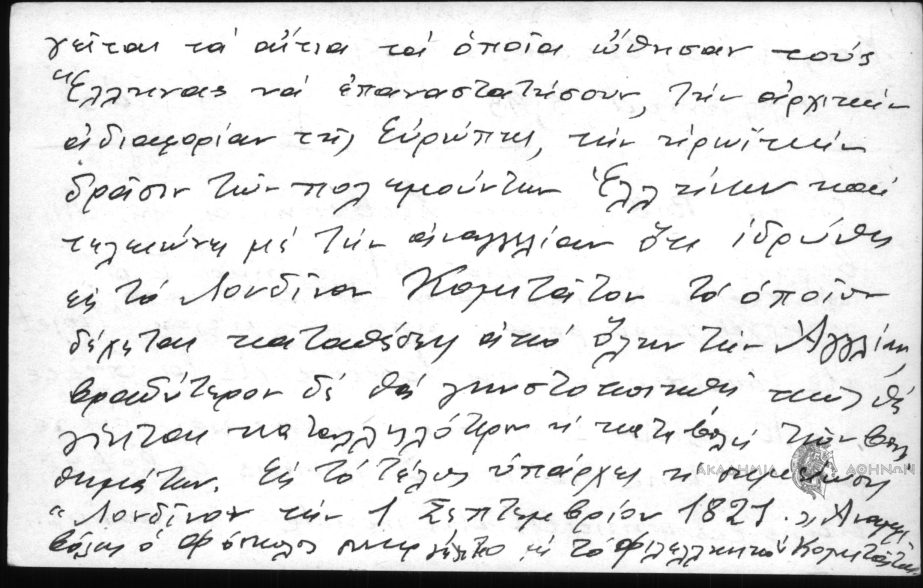 γεῖται τά αἴτια τά ὁποῖα ὤθησαν τούς
Ἕλληνας νά ἐπαναστατήσουν, τήν ἀρχικήν
ἀδιαφορίαν τῆς Εὐρώπης, τήν ἡρωϊκήν
δρᾶσιν τῶν πολεμούντων Ἑλλήνων καί
τελειώνει μέ τήν ἀναγγελίαν ὅτι ἱδρύθη
εἰς τό Λονδῖνον Κομιτᾶτον τό ὁποῖον
δέχεται καταθέσεις ἀπό ὅλην τήν Ἀγγλίαν,
βραδύτερον δέ θά γνωστοποιηθῇ πῶς θά
γίνεται καταλληλότερον ἡ καταβολή τῶν βοη
θημάτων. Εἰς τό τέλος ὑπάρχει ἡ σημείωσις
"Λονδῖνον τήν 1 Σεπτεμβρίου 1821.
ὁ Φώσκολος συνειργάζετο μέ τό Φιλελληνικό Κομιτᾶτον
ΑΚΑΔΗΜΙΑ ΑΘΗΝΩΝ